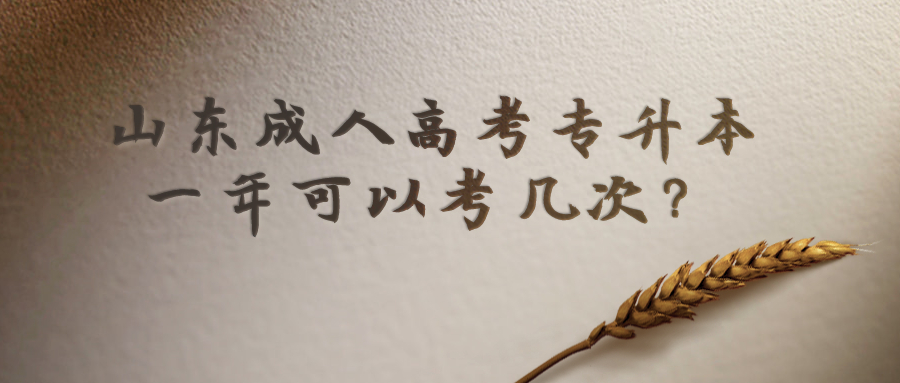 山东成人高考专升本
一年可以考几次？